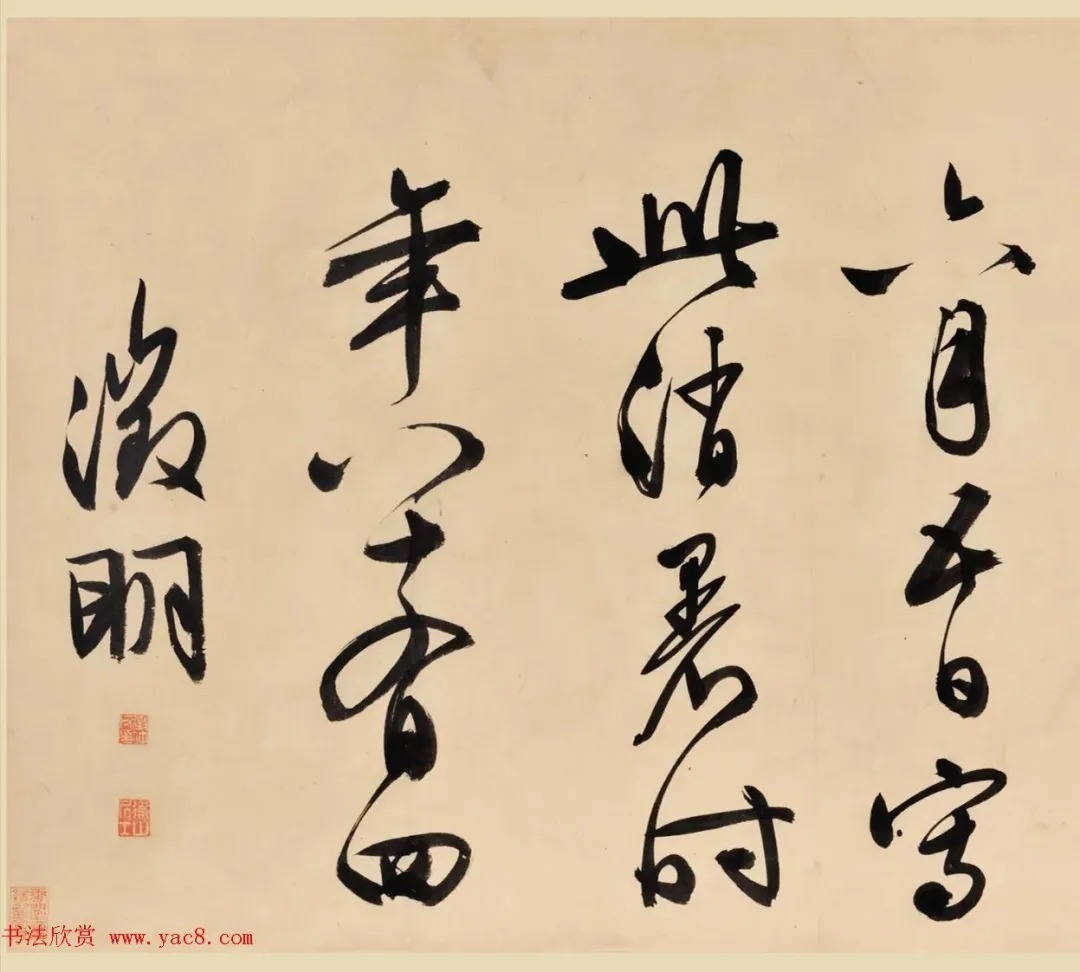 六月五日寫
此消暑時
年八十有四
徵明
书法欣赏 www.yac8.com